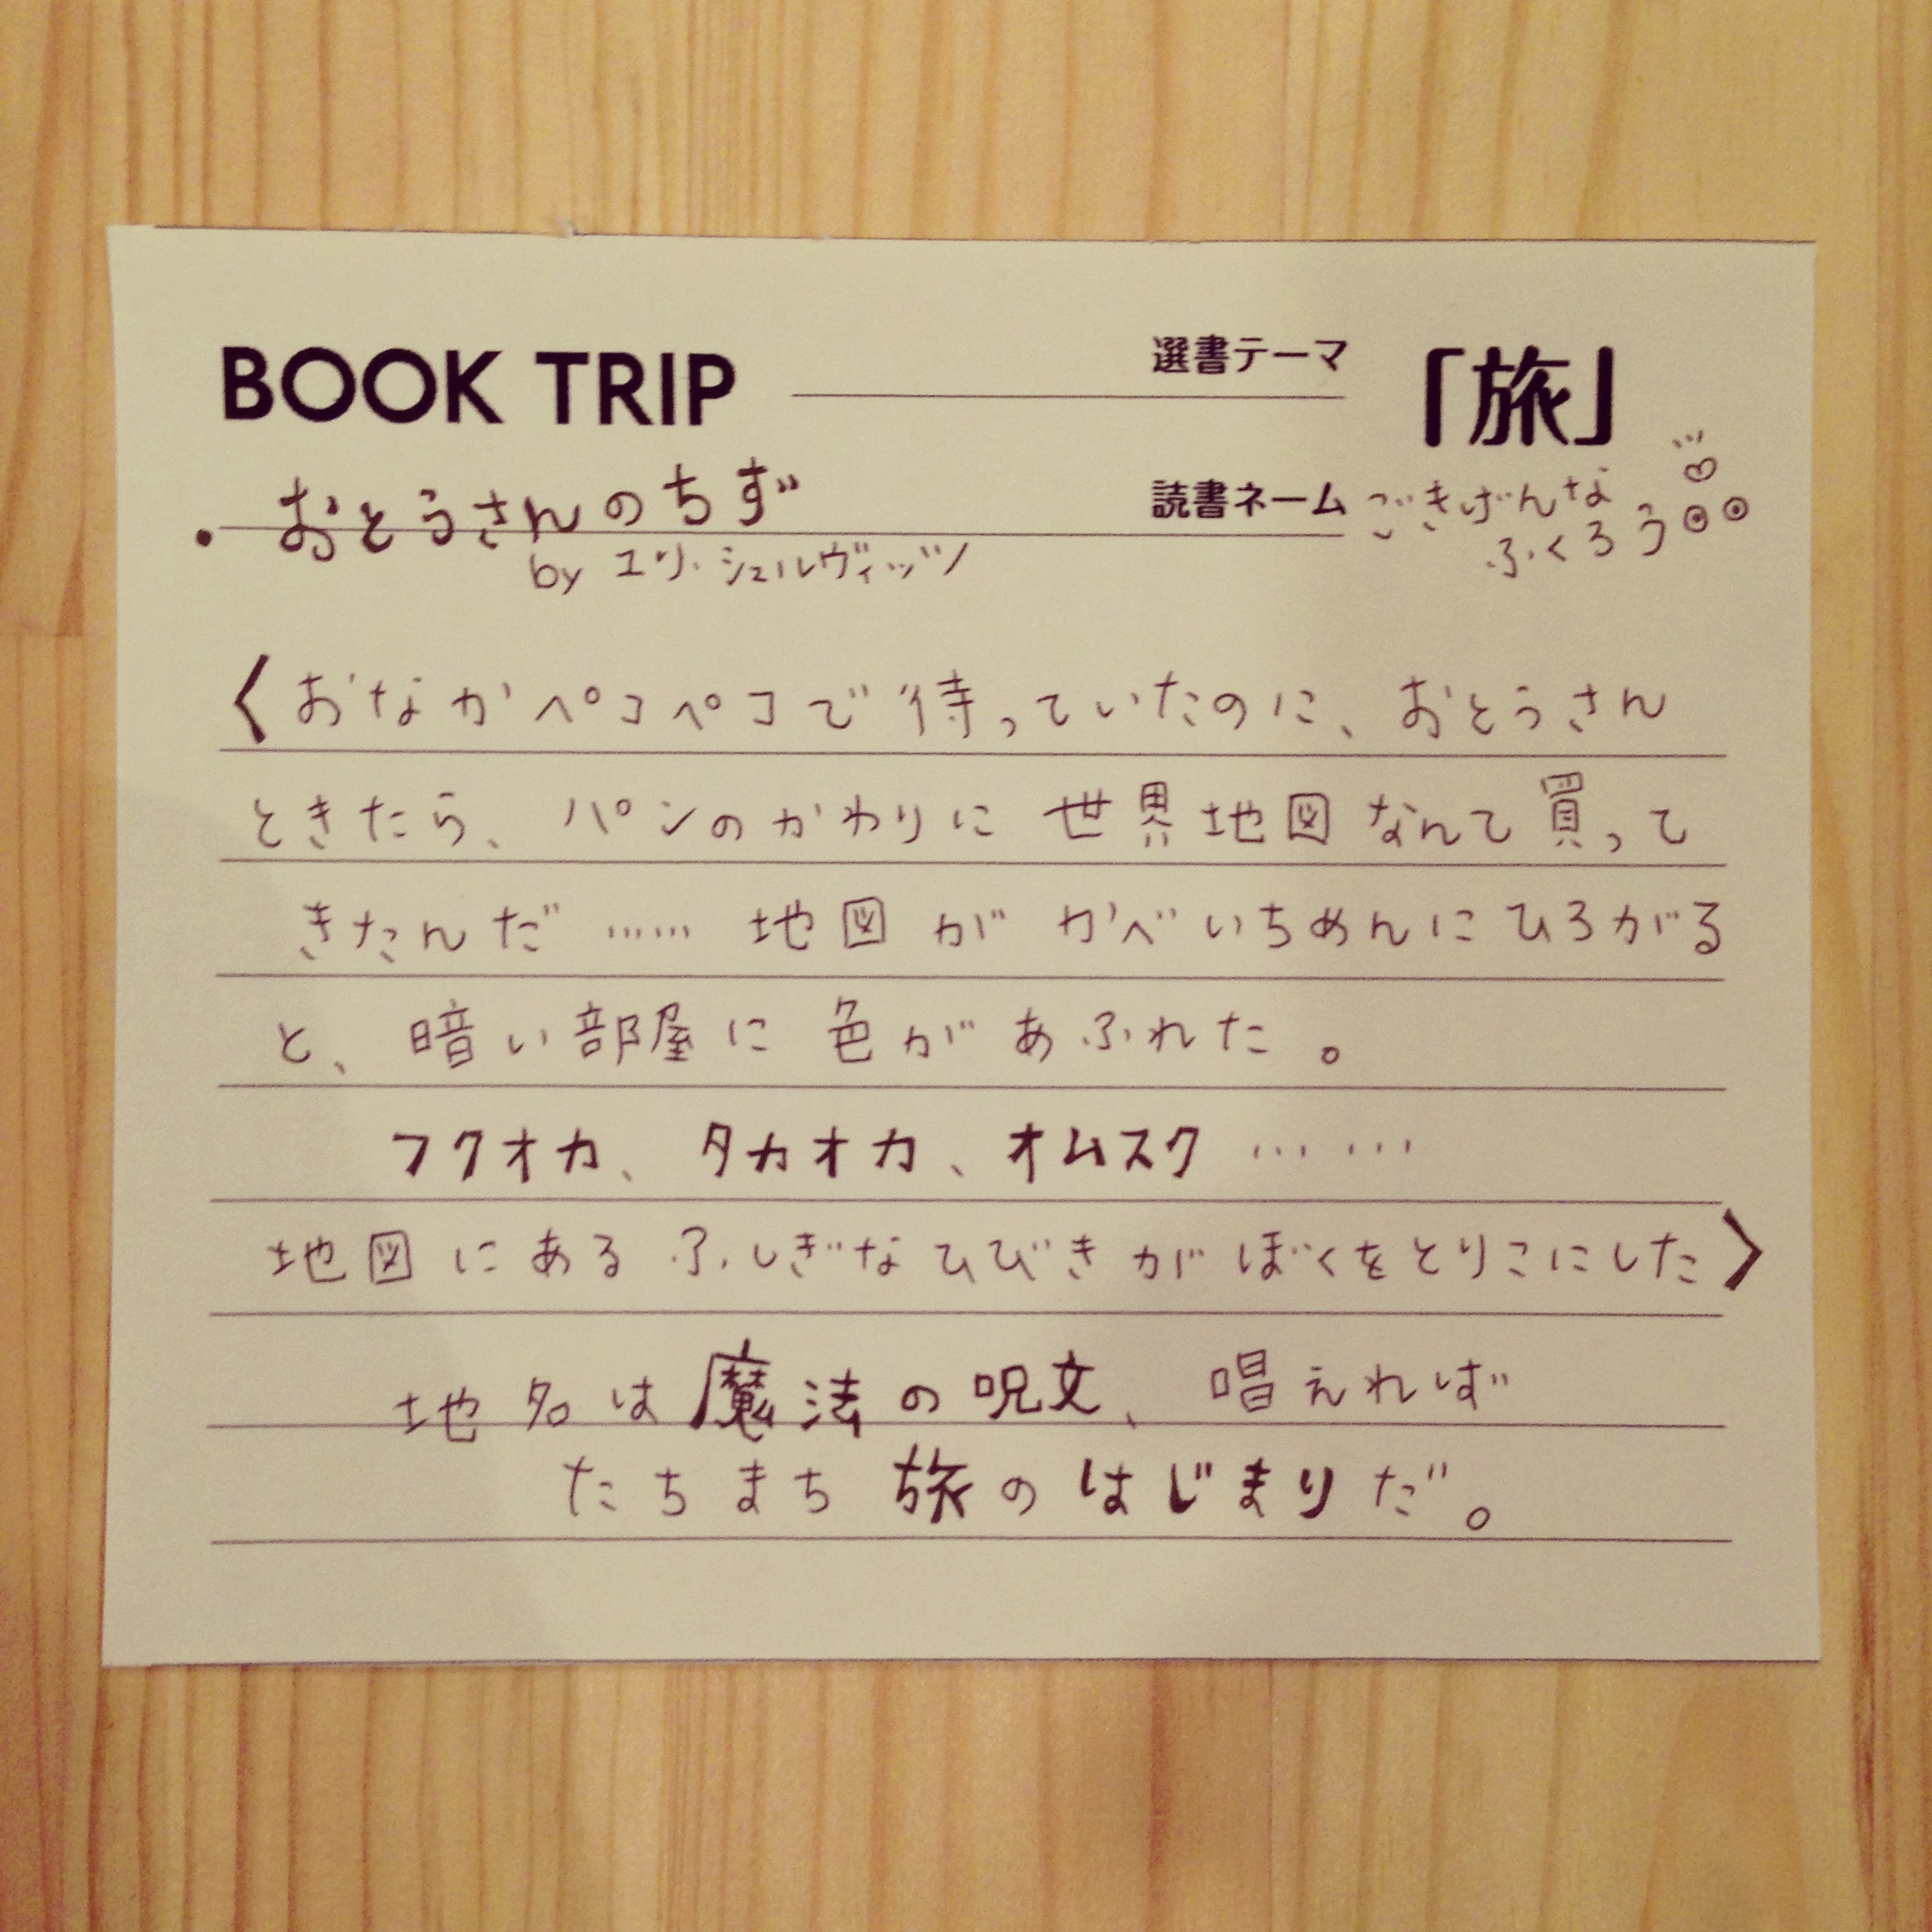 BOOK TRIP 選書テーマ 「旅」
・おとうさんのちず 読書ネーム ごきげんな
by ユリ・シュルヴィッツ ふくろう
〈おなかペコペコで待っていたのに、おとうさん
ときたら、パンのかわりに世界地図なんて買って
きたんだ……地図がかべいちめんにひろがる
と、暗い部屋に色があふれた。
フクオカ、タカオカ、オムスク……
地図にあるふしぎなひびきがぼくをとりこにした〉
地名は魔法の呪文、唱えれば
たちまち旅のはじまりだ。